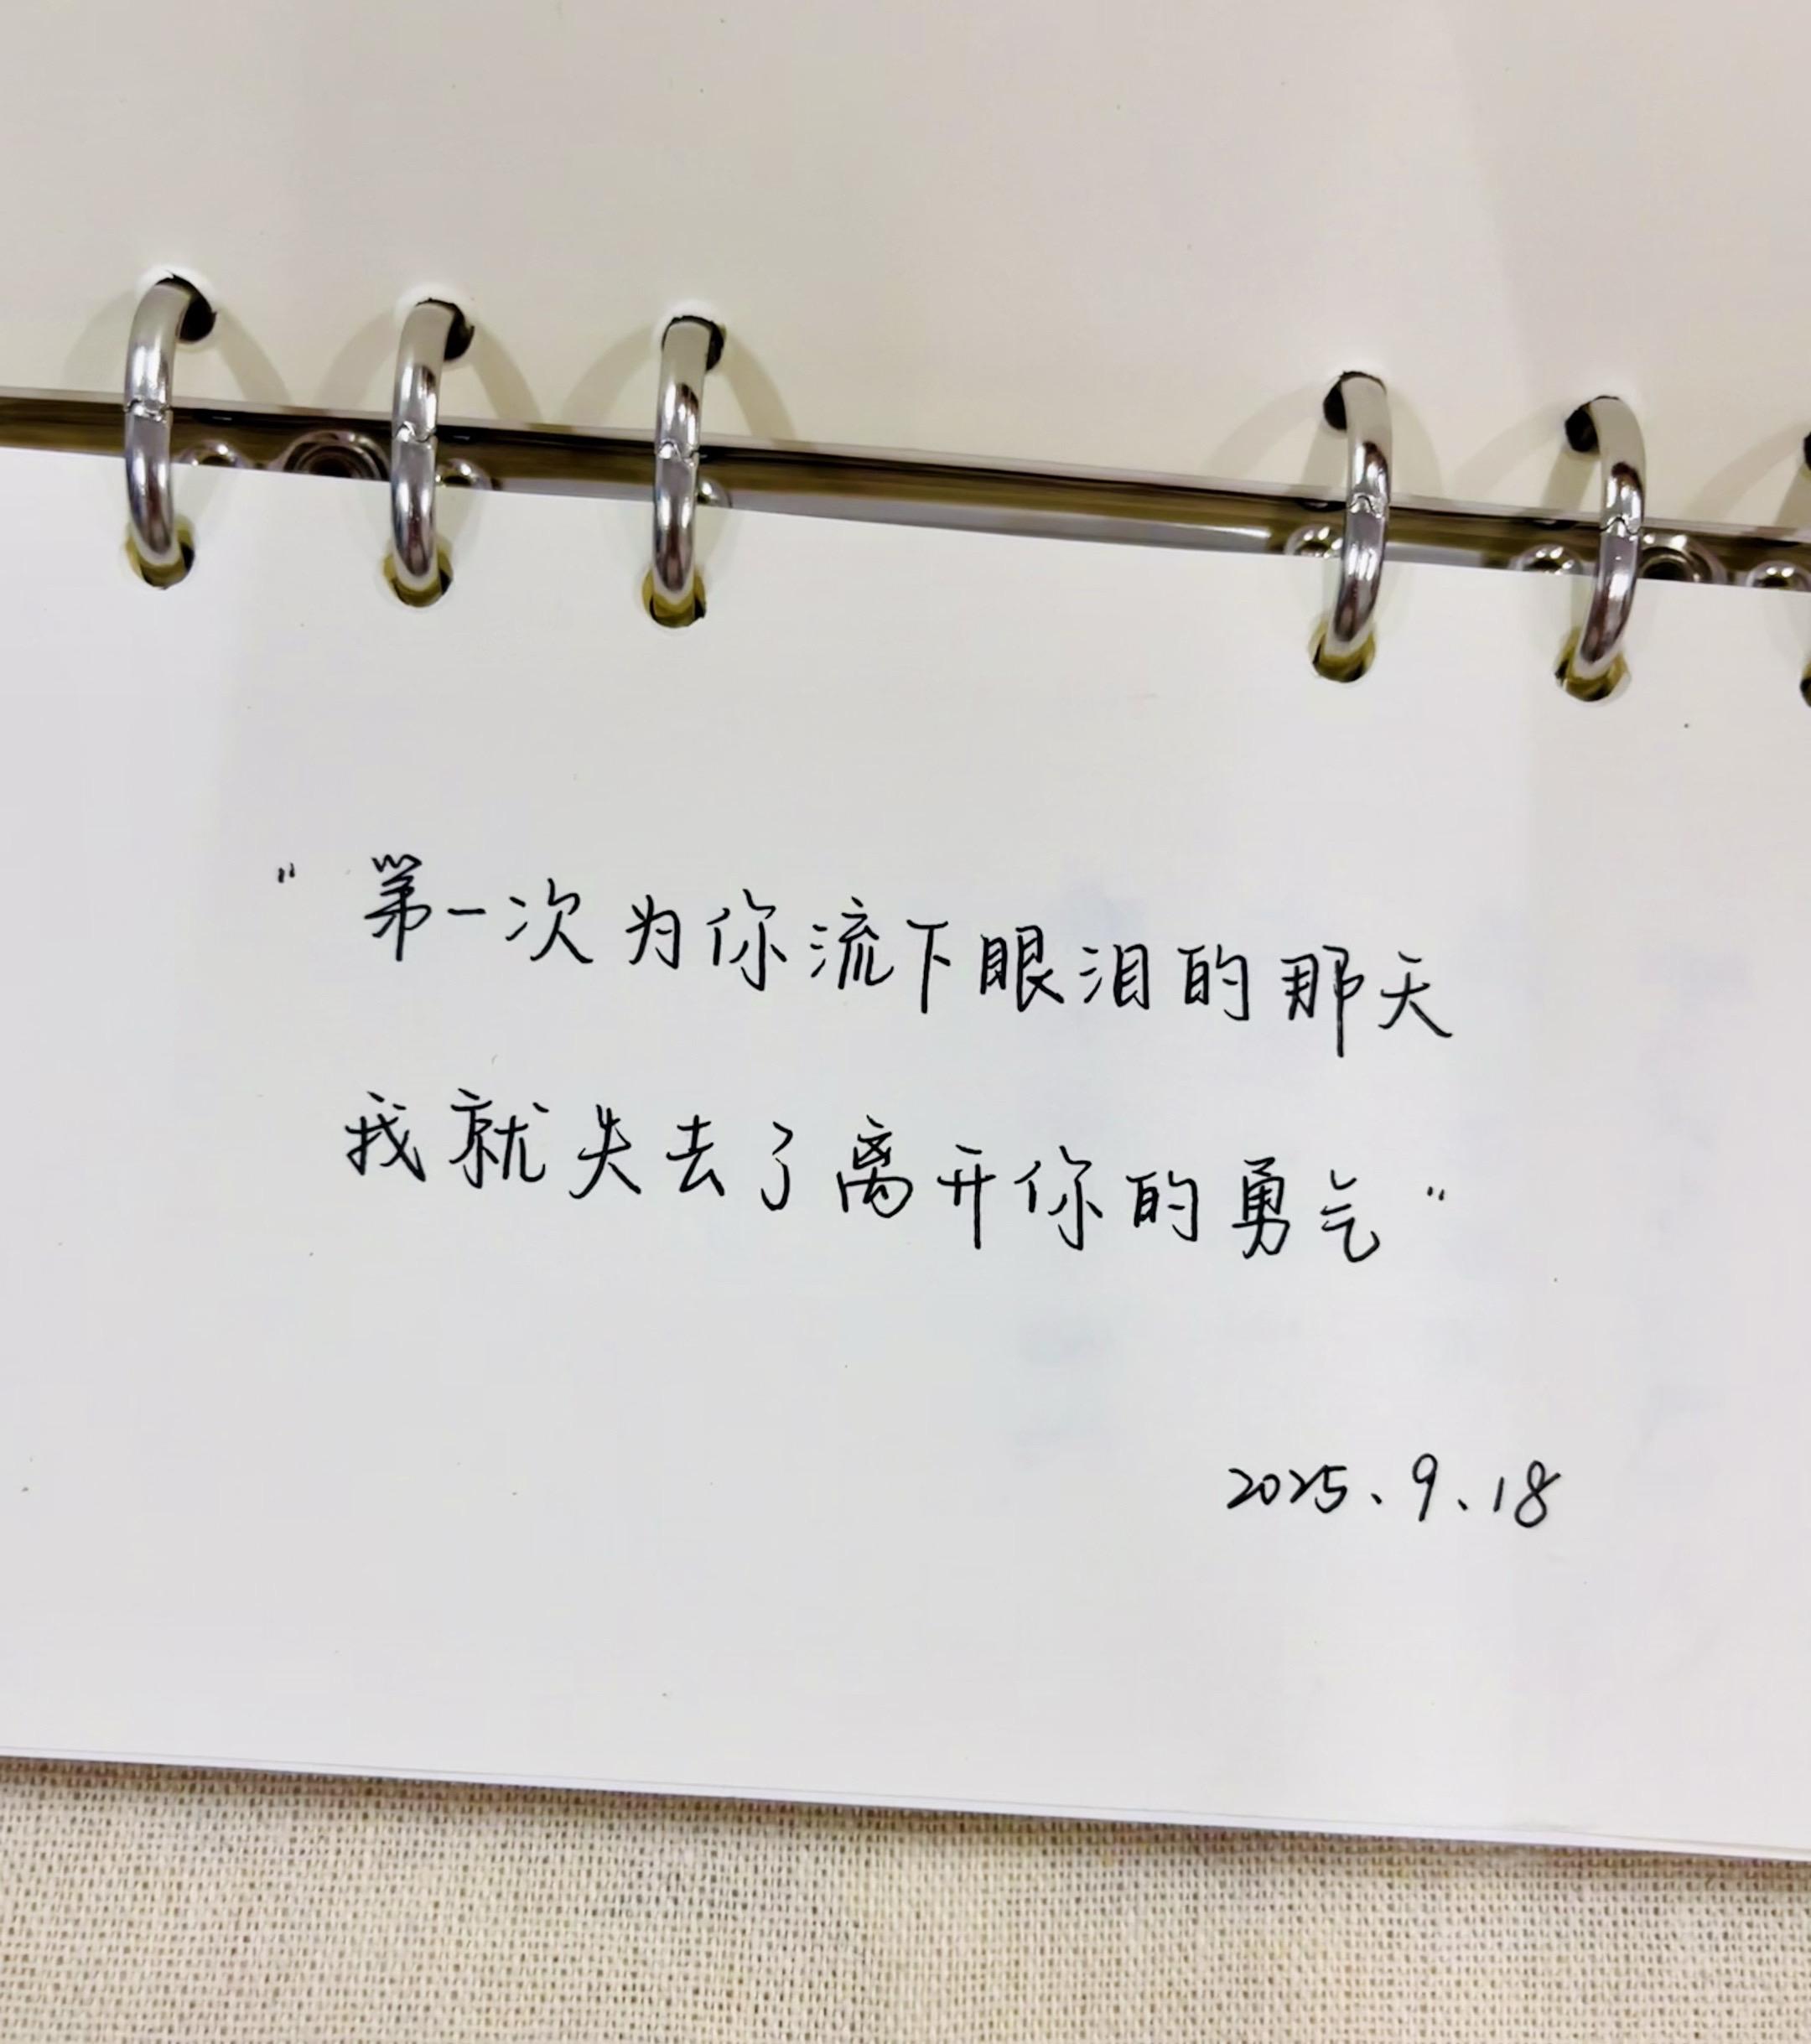 "第一次为你流下眼泪的那天
我就失去了离开你的勇气"
2025、9、18